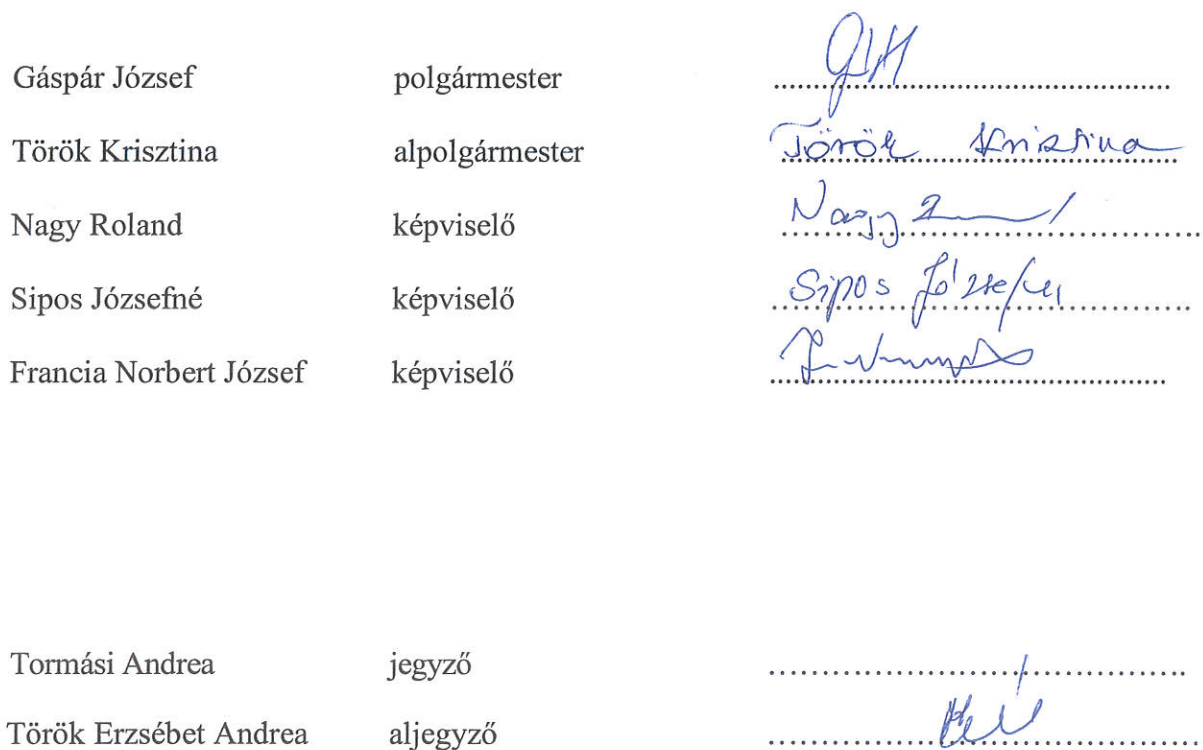 Gáspár József polgármester ........................................
Török Krisztina alpolgármester Török Krisztina
Nagy Roland képviselő Nagy
Sipos Józsefné képviselő Sipos Józsefné
Francia Norbert József képviselő ........................................
Tormási Andrea jegyző ........................................
Török Erzsébet Andrea aljegyző ........................................